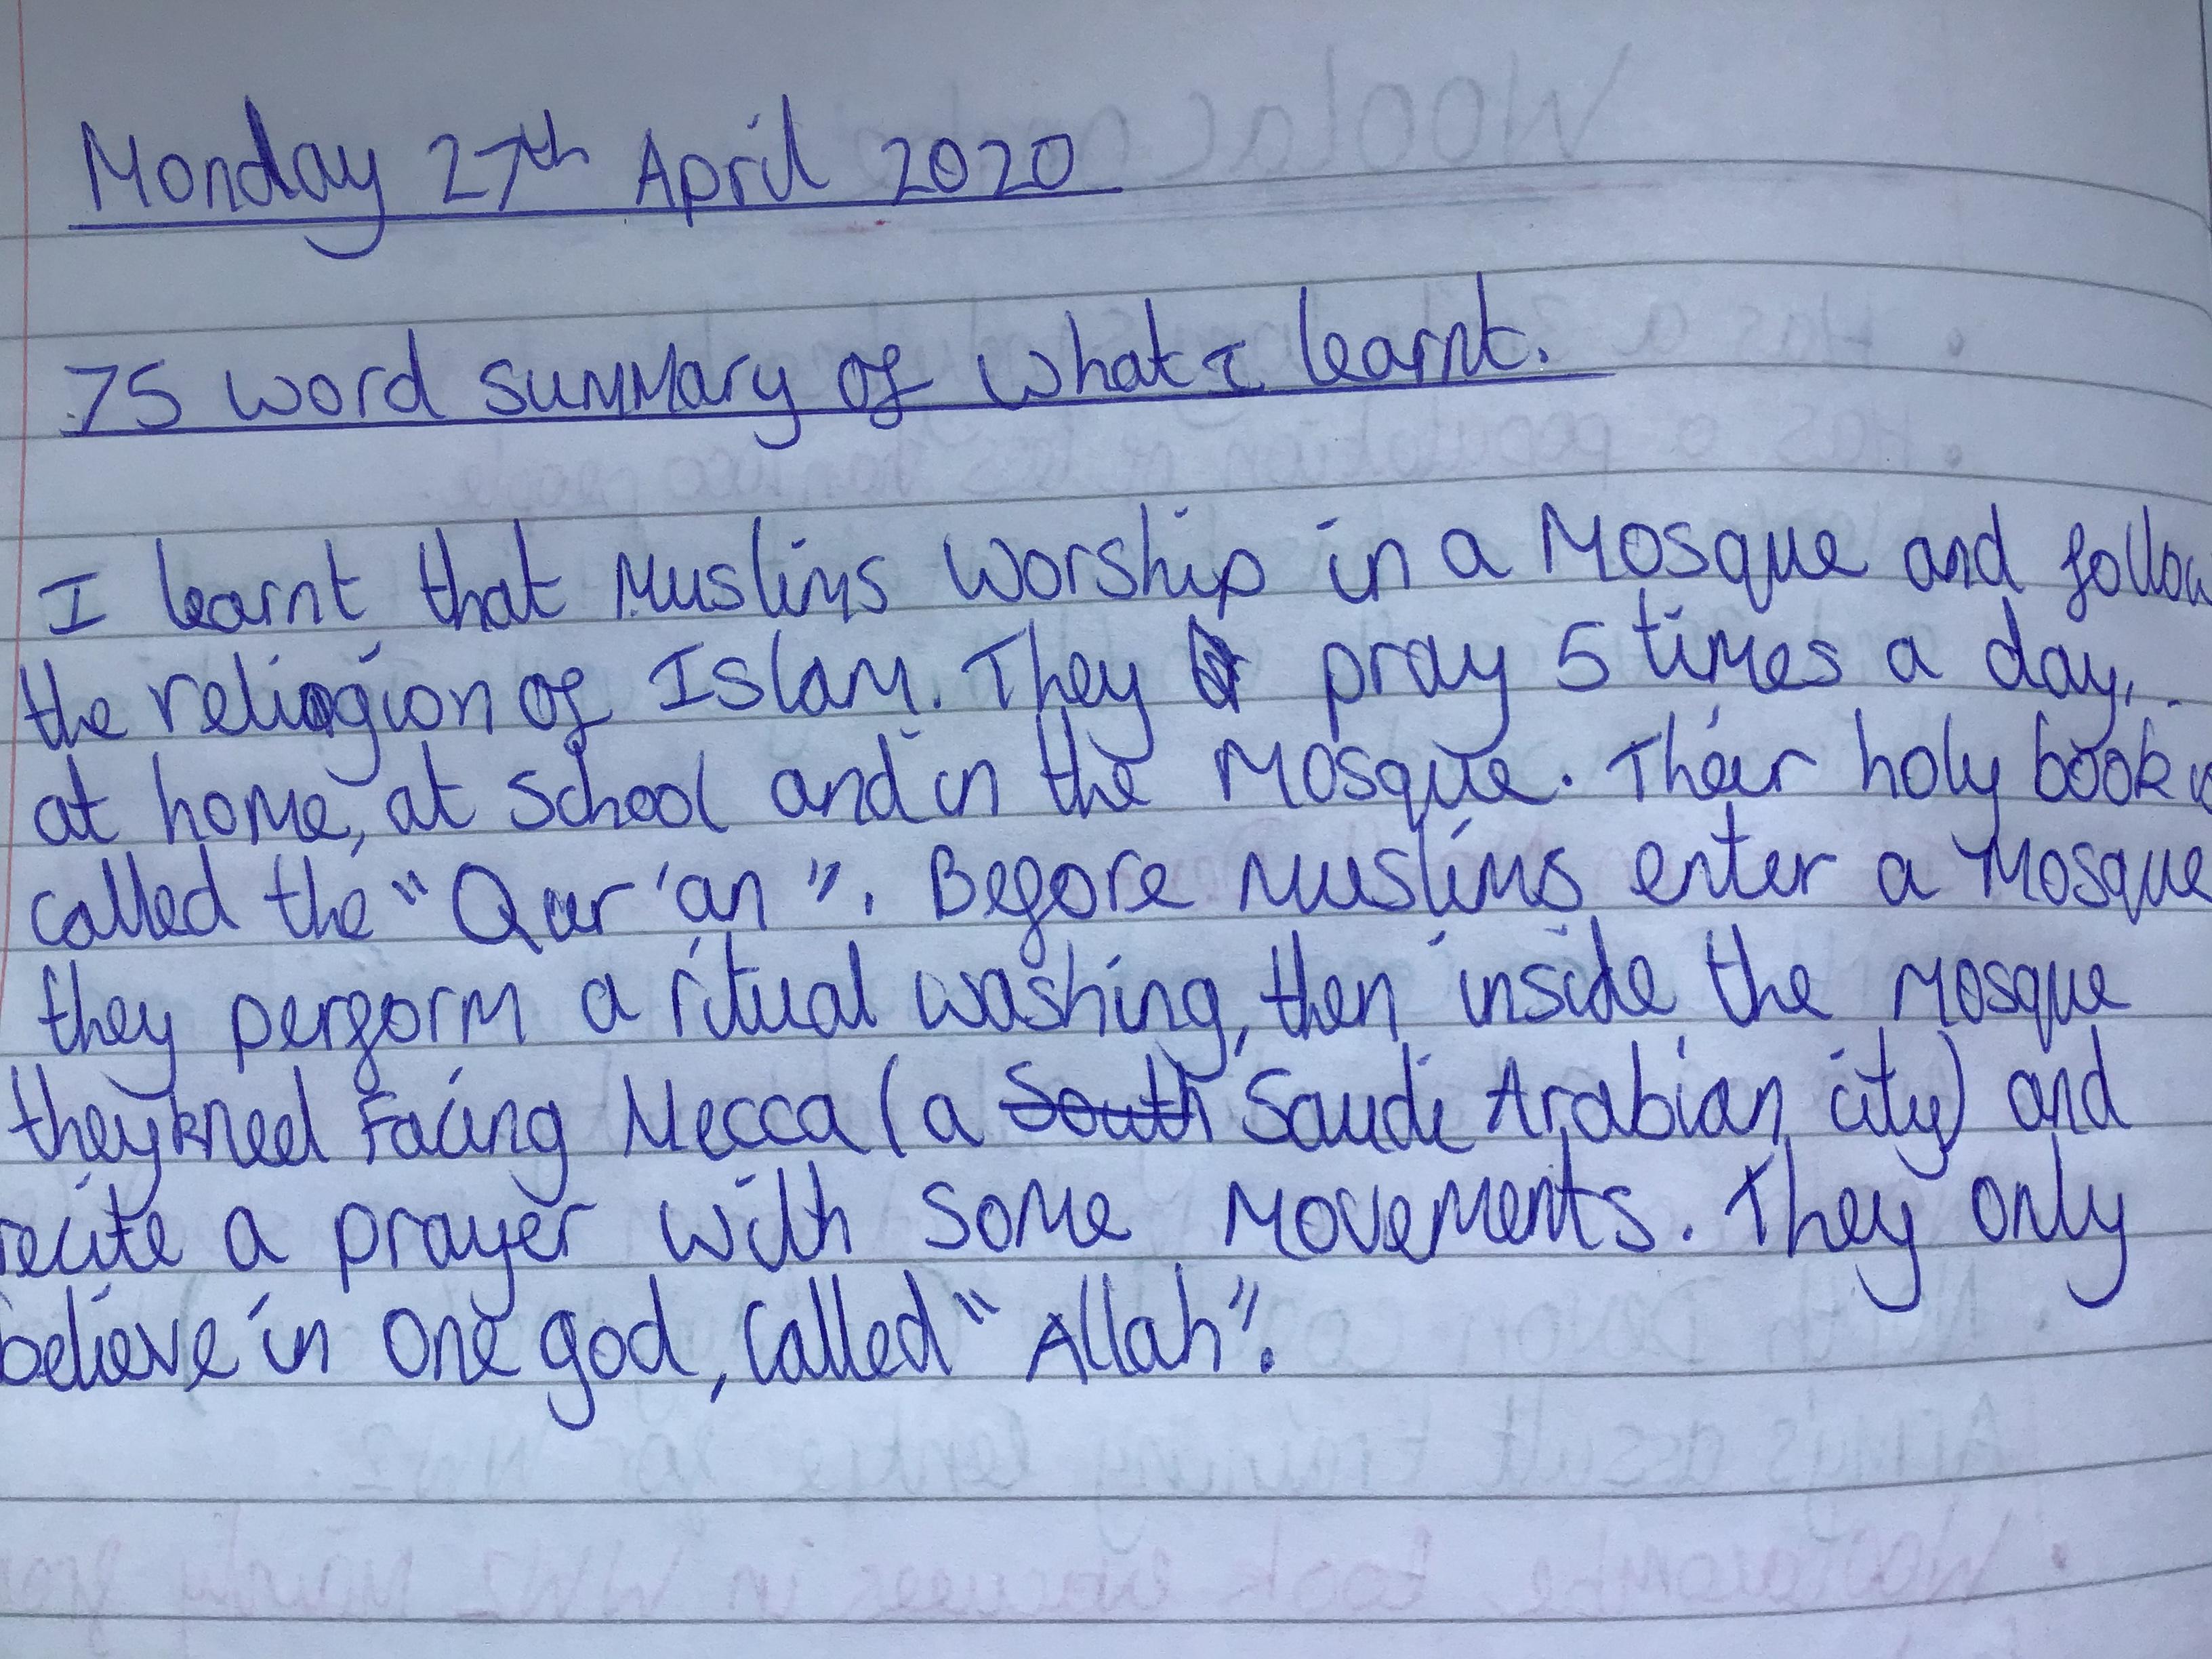 Monday 27th April 2020
75 word summary of what I learnt.
I learnt that Muslims worship in a Mosque and follow
the religion of Islam. They pray 5 times a day,
at home, at school and in the Mosque. Their holy book is
called the "Qur'an". Before Muslims enter a Mosque
they perform a ritual washing, then inside the Mosque
they kneel facing Mecca (a South Saudi Arabian city) and
recite a prayer with some movements. They only
believe in one god, called "Allah".